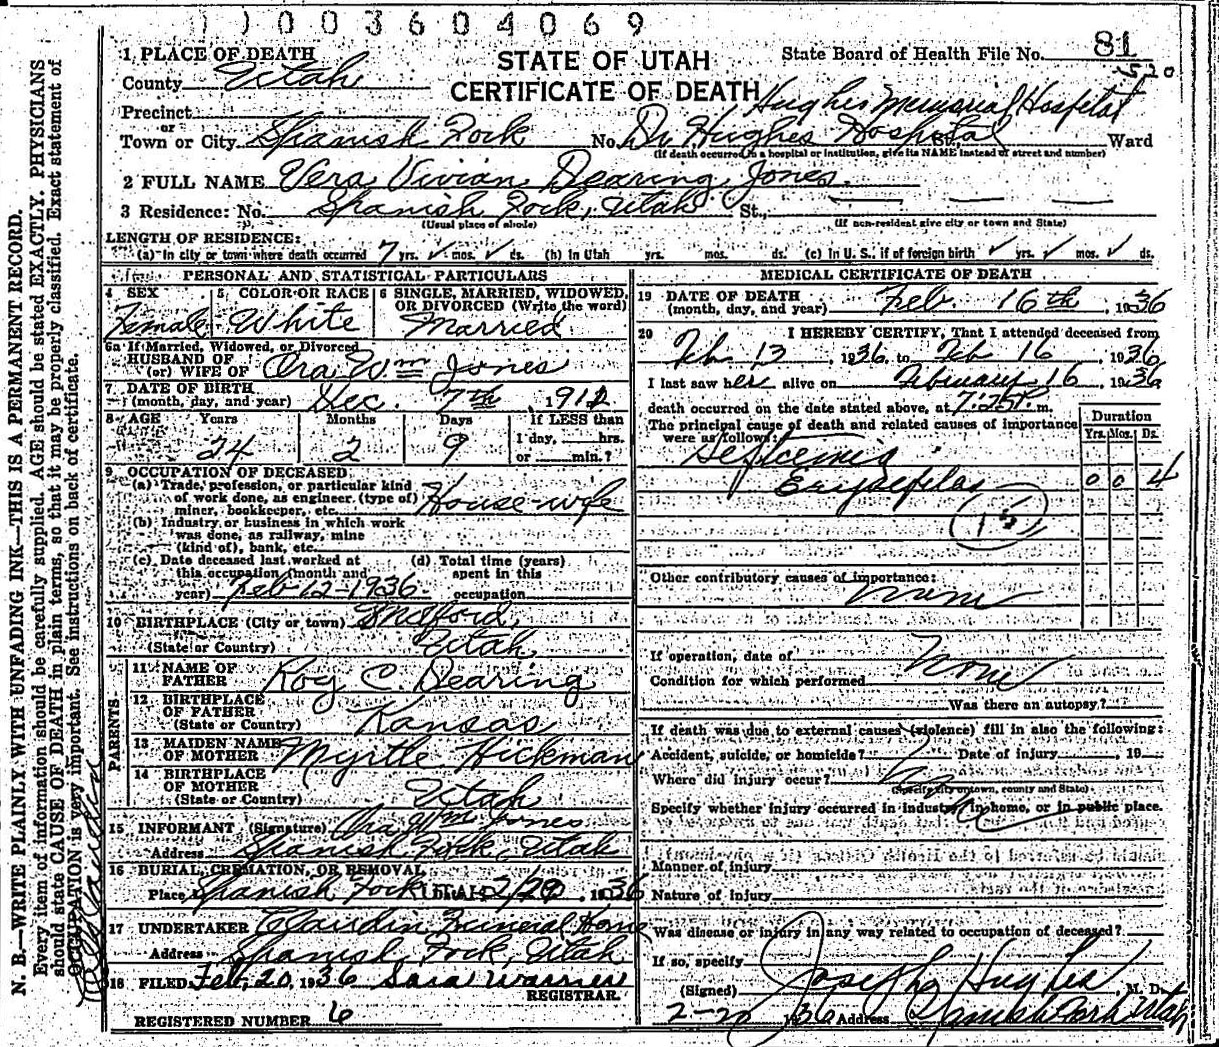 0 0 3 6 0 4 0 6 9
1 PLACE OF DEATH
County Utah
STATE OF UTAH
CERTIFICATE OF DEATH
State Board of Health File No. 81
520
Hughes Memorial Hospital
Precinct
or
Town or City Spanish Fork No. Dr. Hughes Hospital St., Ward
(If death occurred in a hospital or institution, give its NAME instead of street and number)
2 FULL NAME Vera Vivian Dearing Jones
3 Residence: No. Spanish Fork, Utah St.,
(Usual place of abode) (If non-resident give city or town and State)
LENGTH OF RESIDENCE:
(a) In city or town where death occurred 7 yrs. mos. ds. (b) In Utah yrs. mos. ds. (c) In U. S., if of foreign birth yrs. mos. ds.
PERSONAL AND STATISTICAL PARTICULARS
4 SEX Female
5 COLOR OR RACE White
6 SINGLE, MARRIED, WIDOWED, OR DIVORCED (Write the word) Married
6a If Married, Widowed, or Divorced
HUSBAND OF
(or) WIFE OF Ora Wm Jones
7 DATE OF BIRTH
(month, day, and year) Dec. 7th, 1911
8 AGE Years Months Days If LESS than
24 2 9 1 day, hrs.
or min.?
9 OCCUPATION OF DECEASED
(a) Trade, profession, or particular kind
of work done, as engineer (type of)
miner, bookkeeper, etc. House-wife
(b) Industry or business in which work
was done, as railway, mine
(kind of), bank, etc.
(c) Date deceased last worked at
this occupation (month and
year) Feb 12-1936-
(d) Total time (years)
spent in this
occupation
10 BIRTHPLACE (City or town) Milford,
(State or Country) Utah
PARENTS
11 NAME OF
FATHER Roy C. Dearing
12 BIRTHPLACE
OF FATHER
(State or Country) Kansas
13 MAIDEN NAME
OF MOTHER Myrtle Hickman
14 BIRTHPLACE
OF MOTHER
(State or Country) Utah
15 INFORMANT (Signature) Ora Wm Jones
Address Spanish Fork, Utah
16 BURIAL, CREMATION, OR REMOVAL
Place Spanish Fork Utah 2/20, 1936
17 UNDERTAKER Claudin Funeral Home
Address Spanish Fork, Utah
18 FILED Feb, 20, 1936 Sara Warner
REGISTRAR.
REGISTERED NUMBER 6
MEDICAL CERTIFICATE OF DEATH
19 DATE OF DEATH
(month, day, and year) Feb. 16th, 1936
20 I HEREBY CERTIFY, That I attended deceased from
Feb 13, 1936, to Feb 16, 1936
I last saw her alive on February 16, 1936
death occurred on the date stated above, at 7:25P. m.
The principal cause of death and related causes of importance
were as follows:
Duration
Yrs. Mos. Ds.
Septcemia
Erysepilas 0 0 4
15
Other contributory causes of importance:
none
If operation, date of None
Condition for which performed
Was there an autopsy?
If death was due to external causes (violence) fill in also the following:
Accident, suicide, or homicide? Date of injury, 19
Where did injury occur? No
(Specify city or town, county and State)
Specify whether injury occurred in industry, in home, or in public place.
Manner of injury
Nature of injury
Was disease or injury in any way related to occupation of deceased?
If so, specify
(Signed) Joseph Hughes, M. D.
2-20 1936 Address Spanish Fork Utah
N. B.—WRITE PLAINLY WITH UNFADING INK—THIS IS A PERMANENT RECORD.
Every item of information should be carefully supplied. AGE should be stated EXACTLY. PHYSICIANS
should state CAUSE OF DEATH in plain terms, so that it may be properly classified. Exact statement of
OCCUPATION is very important. See instructions on back of certificate.